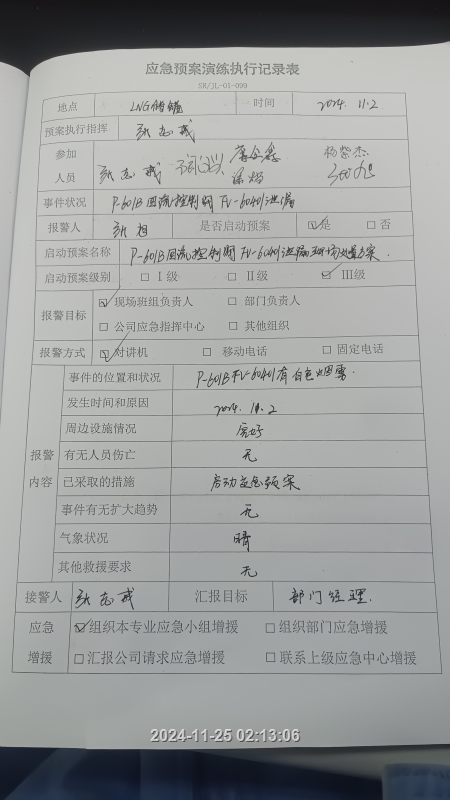 应急预案演练执行记录表
SR/JL-01-099
地点 LNG储罐 时间 2024. 11.2
预案执行指挥 张志成
参加人员 张志成 杨崇杰
事件状况 P-601B回流控制阀 FV-60401泄漏
报警人 张旭 是否启动预案 ☑是 □否
启动预案名称 P-601B回流控制阀 FV-60401泄漏现场处置方案.
启动预案级别 □Ⅰ级 □Ⅱ级 ☑Ⅲ级
报警目标 ☑现场班组负责人 □部门负责人
□公司应急指挥中心 □其他组织
报警方式 ☑对讲机 □移动电话 □固定电话
报警内容
事件的位置和状况 P-601B FV-60401有白色烟雾.
发生时间和原因 2024. 11.2
周边设施情况 完好
有无人员伤亡 无
已采取的措施 启动应急预案
事件有无扩大趋势 无
气象状况 晴
其他救援要求 无
接警人 张志成 汇报目标 部门经理.
应急增援 ☑组织本专业应急小组增援 □组织部门应急增援
□汇报公司请求应急增援 □联系上级应急中心增援
2024-11-25 02:13:06